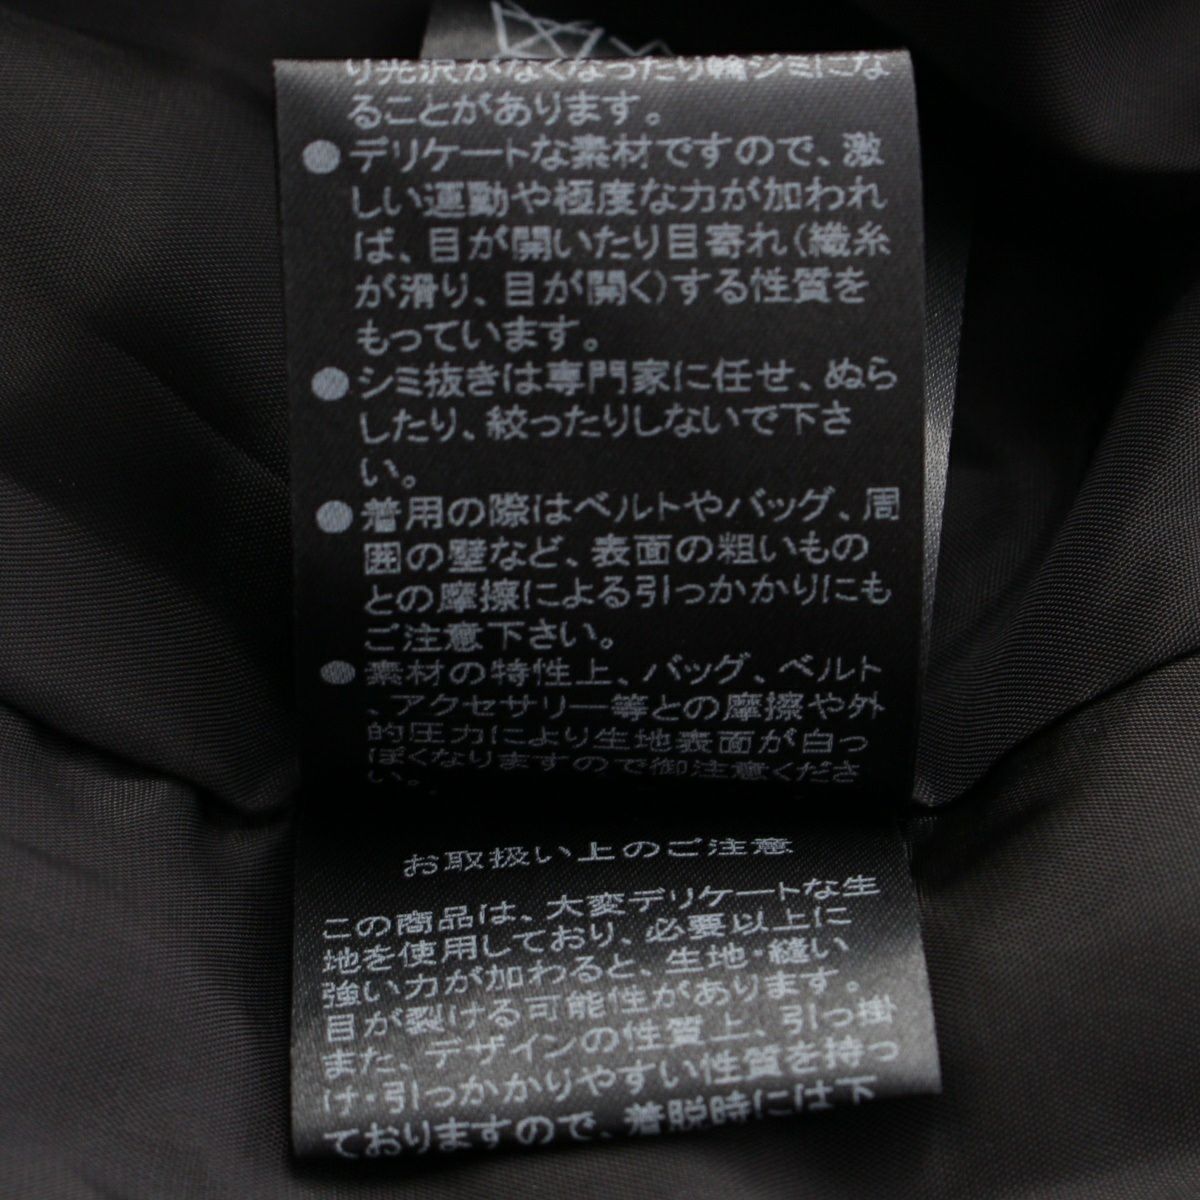 り光沢がなくなったり輪ジミにな
ることがあります。
●デリケートな素材ですので、激
しい運動や極度な力が加われ
ば、目が開いたり目寄れ(織糸
が滑り、目が開く)する性質を
もっています。
●シミ抜きは専門家に任せ、ぬら
したり、絞ったりしないで下さ
い。
●着用の際はベルトやバッグ、周
囲の壁など、表面の粗いもの
との摩擦による引っかかりにも
ご注意下さい。
●素材の特性上、バッグ、ベルト
、アクセサリー等との摩擦や外
的圧力により生地表面が白っ
ぽくなりますので御注意くださ
い。
お取扱い上のご注意
この商品は、大変デリケートな生
地を使用しており、必要以上に
強い力が加わると、生地・縫い
目が裂ける可能性があります。
また、デザインの性質上、引っ掛
け・引っかかりやすい性質を持っ
ておりますので、着脱時には下